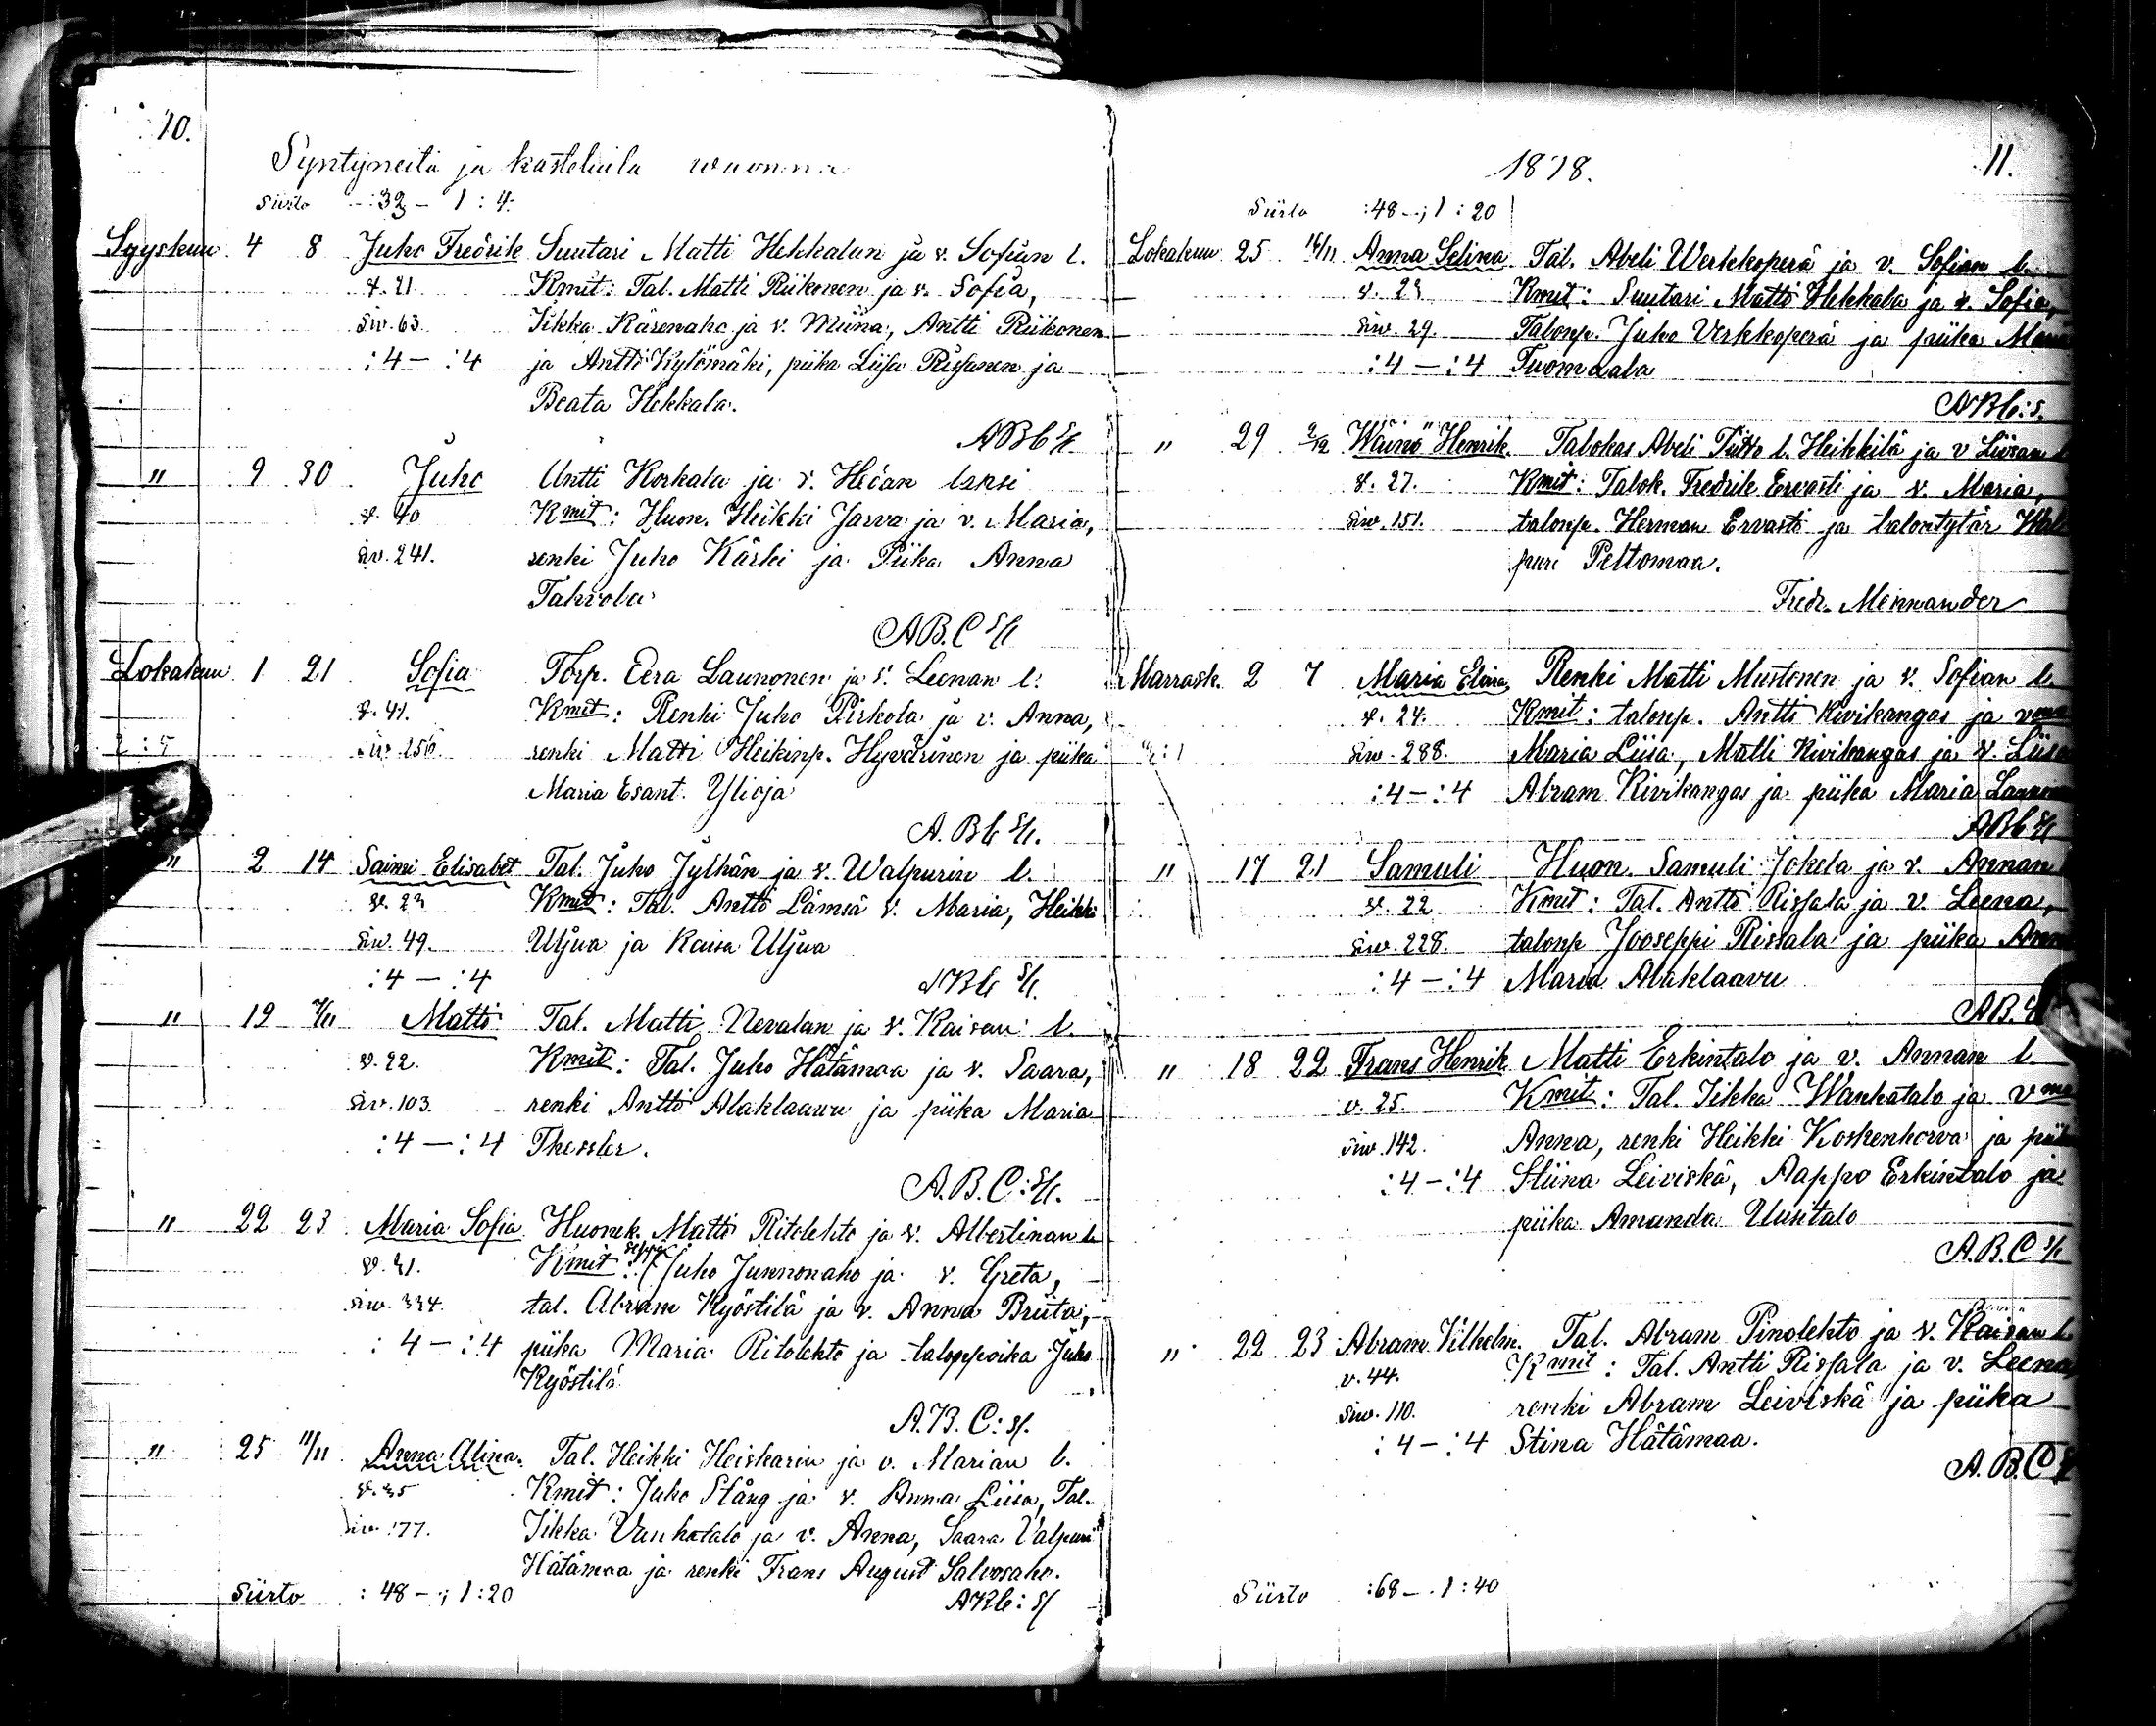 10.
Syntyneitä ja kastetuita wuonna
Siirto :32 – 1:4
Syyskuu 4 8 Juho Fredrik Suutari Matti Hekkalan ja v. Sofian l.
v. 21 Kmit: Tal. Matti Riikonen ja v. Sofia,
Siv. 63. Iikka Käsenaho ja v. Miina, Antti Riikonen
:4 – :4 ja Antti Kylömäki, piika Liisa Rissanen ja
Beata Hekkala.
ABC
" 9 30 Juho Antti Korkala ja v. Hetan lapsi
v. 40 Kmit: Huon. Heikki Jarva ja v. Maria,
Siv. 241. renki Juho Kärki ja Piika Anna
Tahvola
A.B.C
Lokakuu 1 21 Sofia Torp. Eera Launonen ja v. Leenan l.
v. 41. Kmit: Renki Juho Pirkola ja v. Anna,
2:5 siv. 256. renki Matti Heikinp. Hyvärinen ja piika
Maria Esant. Ylioja
A.B.C
" 2 14 Saimi Elisabet Tal. Juho Jylhän ja v. Walpurin l.
v. 23 Kmit: Tal. Antti Lämsä v. Maria, Heikki
Siv. 49. Uljua ja Kaisa Uljua
:4 – :4
ABC
" 19 Matti Tal. Matti Nevalan ja v. Kaisan l.
v. 22. Kmit: Tal. Juho Hätämaa ja v. Saara,
Siv. 103. renki Antti Alaklaavu ja piika Maria
:4 – :4 Thessler.
A.B.C:
" 22 23 Maria Sofia Huonek. Matti Ritolehto ja v. Albertinan l.
v. 31. Kmit: seppä Juho Junnonaho ja v. Greta,
siv. 334. tal. Abram Kyöstilä ja v. Anna Briita,
:4 – :4 piika Maria Ritolehto ja talonpoika Juho
Kyöstilä
A.B.C:
" 25 11/11 Anna Alina. Tal. Heikki Heiskarin ja v. Marian l.
v. 35 Kmit: Juho Stång ja v. Anna Liisa, Tal.
Siv. 177. Iikka Vanhatalo ja v. Anna, Saara Valpuri
Hätämaa ja renki Frans August Salvosaho.
Siirto :48 – ; 1:20 ABC:
1878. 11.
Siirto :48 – ; 1:20
Lokakuu 25 Anna Selina Tal. Abeli Werkkoperä ja v. Sofian l.
v. 23 Kmit: Suutari Matti Hekkala ja v. Sofia,
Siv. 29. Talonp. Juho Verkkoperä ja piika Maria
:4 – :4 Tuomaala
ABC:
" 29 2/12 Wäinö Henrik. Talokas Abeli Tütto l. Heikkilä ja v Liisan
v. 27. Kmit: Talok. Fredrik Ervasti ja v. Maria,
Siv. 151. talonp. Herman Ervasti ja talontytär Wal
puri Peltomaa.
Fredr. Mennander
Marrask. 2 7 Maria Elvira Renki Matti Mustonen ja v. Sofian l.
v. 24. Kmit: talonp. Antti Kivikangas ja vmo
Siv. 288. Maria Liisa, Matti Kivikangas ja v. Liisa
:4 – :4 Abram Kivikangas ja piika Maria
ABC
" 17 21 Samuli Huon. Samuli Jokela ja v. Annan
v. 22 Kmit: Tal. Antti Rissala ja v. Leena,
Siv. 228. talonp Jooseppi Rissala ja piika Anna
:4 – :4 Maria Alaklaavu
AB.
" 18 22 Frans Henrik Matti Erkintalo ja v. Annan l.
v. 25. Kmit: Tal. Iikka Wanhatalo ja vmo
siv. 142. Anna, renki Heikki Koskenkorva ja piika
:4 – :4 Stiina Leiviskä, Aappo Erkintalo ja
piika Amanda Uusitalo
A.B.C
" 22 23 Abram Vilhelm. Tal. Abram Pinolehto ja v. Kaisan l.
v. 44. Kmit: Tal. Antti Rissala ja v. Leena,
Siv. 110. renki Abram Leiviskä ja piika
:4 – :4 Stina Hätämaa.
A.B.C
Siirto :68 – . 1:40